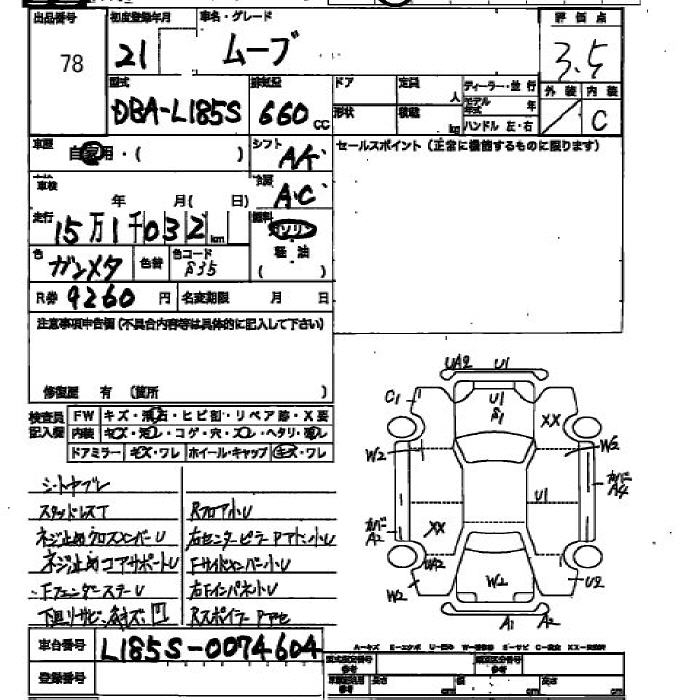 出品番号 初度登録年月 車名・グレード 評価点
78 21 ムーブ 3.5
型式 排気量 ドア 定員 人 ディーラー・並行 外装 内装
DBA-L185S 660 CC 形状 積載 kg モデル年式 年 C
ハンドル 左・右
車歴 自家用・( ) シフト AK セールスポイント(正常に機能するものに限ります)
車検 年 月( 日) 冷房 AC
走行 15万1千032 km 燃料 ガソリン
色 ガンメタ 色替 色コード S35 軽油
( )
R券 9260 円 名変期限 月 日
注意事項申告欄(不具合内容等は具体的に記入して下さい)
修復歴 有 (箇所 )
検査員記入欄 FW キズ・飛石・ヒビ割・リペア跡・X要
内装 キズ・汚レ・コゲ・穴・スレ・ヘタリ・濡レ
ドアミラー キズ・ワレ ホイール・キャップ キズ・ワレ
シートヤブレ
スタッドレスT RフロアホU
ネジ止めクロスメンバーU 右センターピラーPアト、小U
ネジ止めコアサポートU Fサイドメンバー小U
FフェンダーステーU 右Fインパネ小U
下回リサビ、キズ、凹 Rスポイラー Pアセ
車台番号 L185S-0074604
登録番号
UA2 U1
C1 U1 A1 XX
W2 W2
カバーA4
U1
カバーA2 XX
UA2 W2 U2
W2
A1 A2
A-キズ E-エクボ U-凹み W-補修跡 S-サビ C-腐食 XX-交換済
型式指定番号 類別区分番号
参考 参考
長さ cm 幅 cm 高さ cm